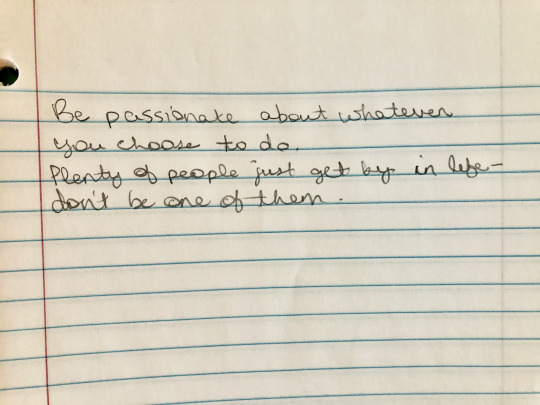 Be passionate about whatever
you choose to do.
Plenty of people just get by in life-
don't be one of them.